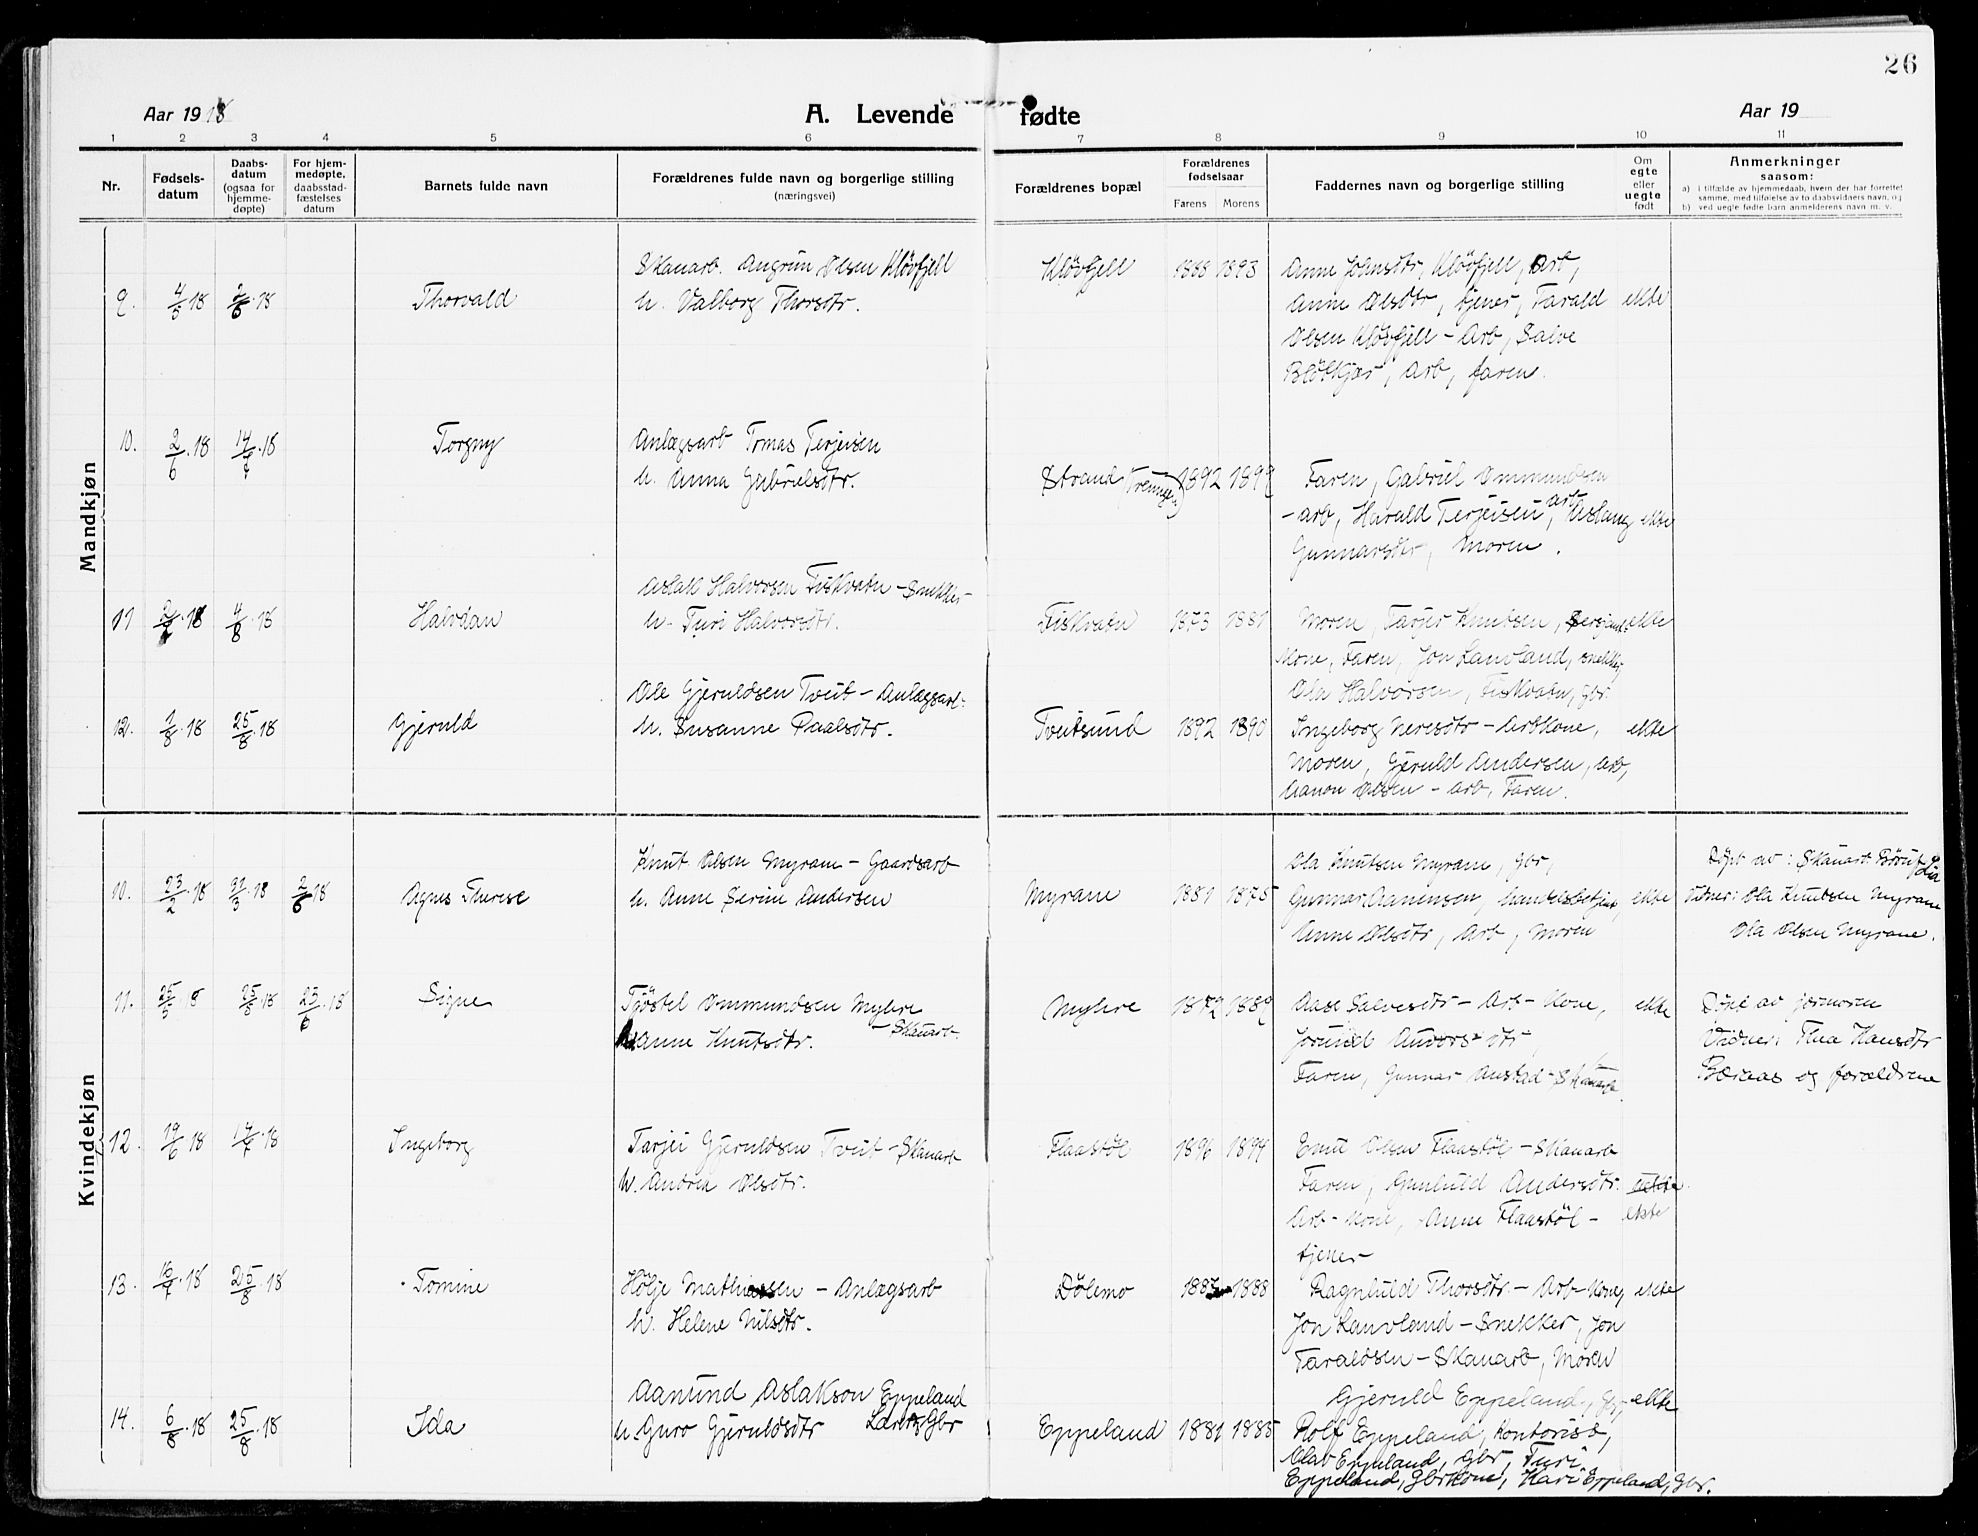 26
Aar 1918
A. Levende fødte
Aar 19
1 2 3 4 5 6 7 8 9 10 11
Nr.
Fødsels-datum
Daabs-datum (ogsaa for hjemme-døpte)
For hjem-medøpte, daabsstad-fæstelses datum
Barnets fulde navn
Forældrenes fulde navn og borgerlige stilling (næringsvei)
Forældrenes bopæl
Forældrenes fødselsaar
Farens Morens
Faddernes navn og borgerlige stilling
Om egte eller uegte født
Anmerkninger saasom:
a) i tilfælde av hjemmedaab, hvem der har forrettet samme, med tilføielse av to daabsvidners navn, og
b) ved uegte fødte barn anmelderens navn m. v.
Mandkjøn
Skauarb. Angrim Olsen Kløvfjell
Kløvfjell 1888 1893
Anne Johnsdtr, Kløvfjell, Arb,
9. 4/5 18 2/6 18 Thorvald
h. Valborg Thorsdtr.
Anne Olsdtr, tjener, Tarald ekte
Olsen Kløvfjell - Arb, Salve
Arb, faren.
10. 2/6 18 14/7 18 Torgny
Anlægsarb Tomas Terjeisen
h. Anna Gabrielsdtr.
Strand 1892 1899
Faren, Gabriel Ommundsen
- arb, Harald Terjeisen, arb, Aslaug ekte
Gunnarsdtr, Moren.
Aslak Halvorsen Fiskvatn - Snekker
11 18 4/8 18 Halvdan
h. Turi Halvorsdtr.
Fiskvatn 1873 1881
Moren, Tarjer Knutsen, ekte
Kone, Faren, Jon Lauvland, snekker,
Ola Halvorsen, Fiskvatn, gbr.
Ole Gjeruldsen Tveit - Anlægsarb.
12. 1/8 18 25/8 18 Gjeruld
h. Susanne Paalsdtr.
Tveitsund 1892 1890
Ingeborg Neresdtr - Arbkone, ekte
Moren, Gjeruld Andersen, arb,
Aanon Olsen - arb, Faren.
Kvindekjøn
Knut Olsen Myrane - Gaardsarb
Ola Knutsen Myrane, gbr,
Døpt av: Skauarb Lia
10. 23/2 18 31/3 18 2/6 18 Agnes Therese
h. Anne Serine Andersen
Myrane 1881 1875
Gunnar Aanensen, handelsbetjent, ekte
Vidner: Ola Knutsen Myrane
Anne Olsdtr, Arb, Moren
Ola Olsen Myrane.
11. 25/5 8 25/5 18 23/6 18 Signe
Tjøstel Ommundsen Myhre
- Skauarb.
h. Anne Knutsdtr.
Myhre 1872 1889
Aase Salvesdtr - Arb - Kone, ekte
Jorund Anders dtr,
Faren, Gunnar Austad - Skauarb.
Døpt av jormoren
Vidner: Thea Hansdtr
og forældrene
12. 19/6 18 14/7 18 Ingeborg
Tarjei Gjeruldsen Tveit - Skauarb
h. Andrea Olsdtr.
Flaastøl 1896 1899
Olsen Flaastøl - Skauarb
Faren, Gunhild Andersdtr.
Arb - Kone, Anne Flaastøl - ekte
tjener
13. 16/7 18 25/8 18 Tomine
Hølje Mathiassen - Anlægsarb
h. Helene Nilsdtr.
Dølemo 1888
Ragnhild Thorsdtr - Arb - Kone, ekte
Jon Lauvland - Snekker, Jon
Taraldsen - Skauarb, Moren
14. 6/8 18 25/8 18 Ida
Aanund Aslakson Eppeland
h. Guro Gjeruldsdtr Gbr
Eppeland 1881 1885
Gjeruld Eppeland, Gbr, ekte
Rolf Eppeland, Kontorist,
Olav Eppeland, Gbr, Turi
Eppeland, Gbrkone, Kari Eppeland, Gbr.